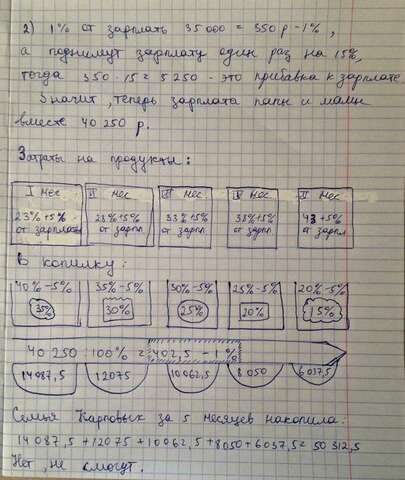 2) 1% от зарплаты 35 000 = 350 р – 1%,
а поднимут зарплату один раз на 15%,
тогда 350 · 15 = 5 250 - это прибавка к зарплате
Значит, теперь зарплата папы и мамы
вместе 40 250 р.
Затраты на продукты:
I мес II мес III мес IV мес V мес
23% +5% 28% +5% 33% +5% 38% +5% 43 +5%
от зарплаты от зарпл от зарпл. от зарпл от зарпл
В копилку:
40% -5% 35% -5% 30% -5% 25% -5% 20% -5%
35% 30% 25% 20% 15%
40 250 : 100% = 402,5 – 1%
14 087,5 12075 10 062,5 8 050 6 037,5
Семья Карповых за 5 месяцев накопила:
14 087,5 + 12075 + 10 062,5 + 8050 + 6037,5 = 50 312,5
Нет, не смогут.